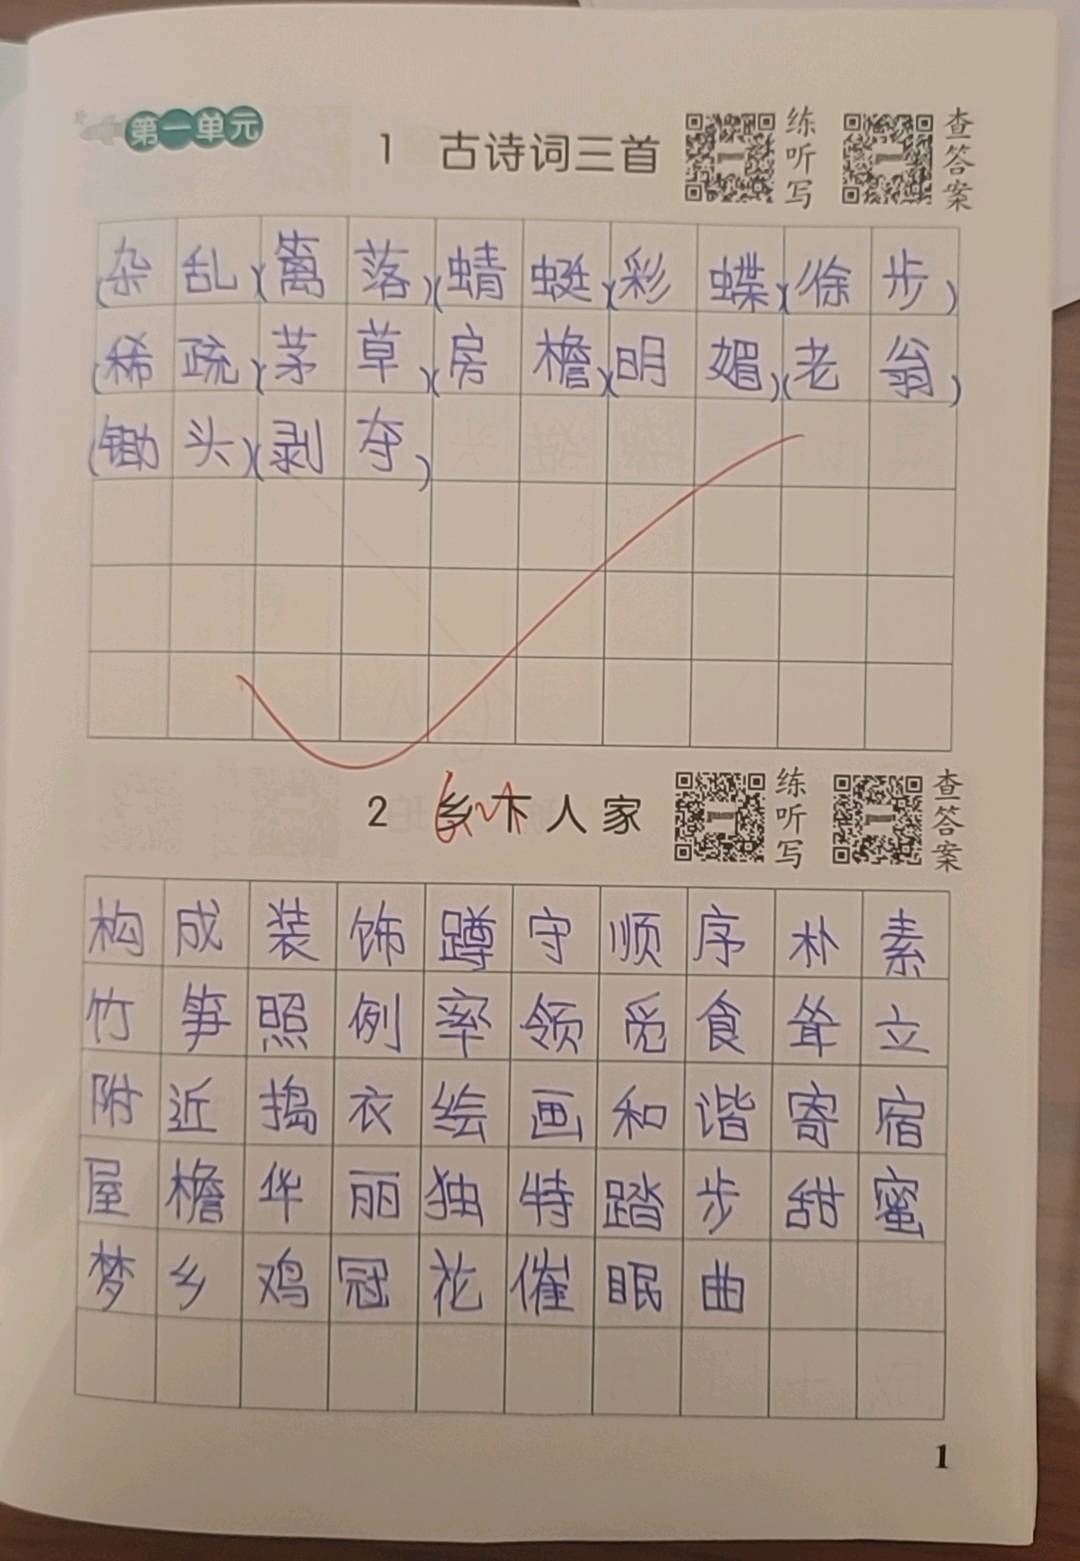 第一单元
1 古诗词三首 练听写 查答案
(杂乱)(篱落)(蜻蜓)(彩蝶)(徐步)
(稀疏)(茅草)(房檐)(明媚)(老翁)
(锄头)(剥夺)
2 乡下人家 练听写 查答案
构成装饰蹲守顺序朴素
竹笋照例率领觅食耸立
附近捣衣绘画和谐寄宿
屋檐华丽独特踏步甜蜜
梦乡鸡冠花催眠曲
1